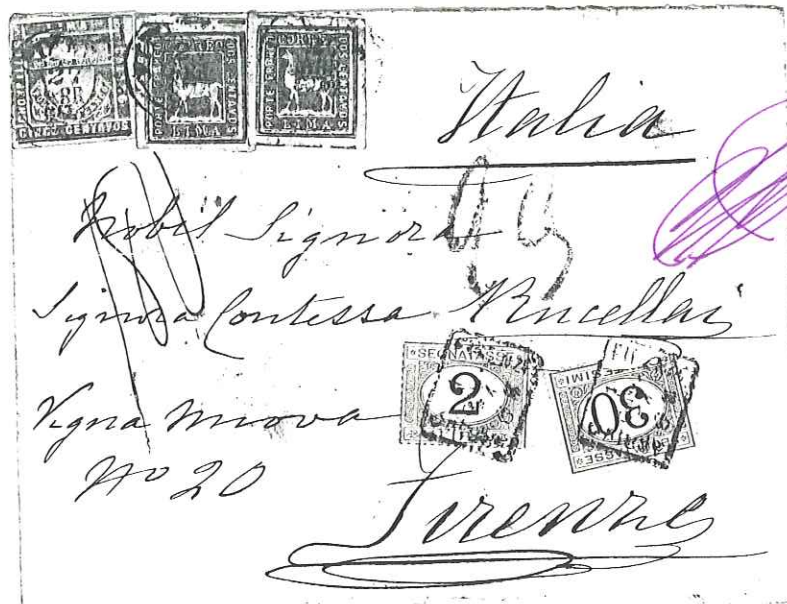 CINCO CENTAVOS
PORTE FRANCO CORREO DOS CENTAVOS LIMA
PORTE FRANCO CORREO DOS CENTAVOS LIMA
Italia
Nobil Signora
Signora Contessa Rucellai
SEGNATASSE
2
30
Vigna nuova
No 20
Firenze